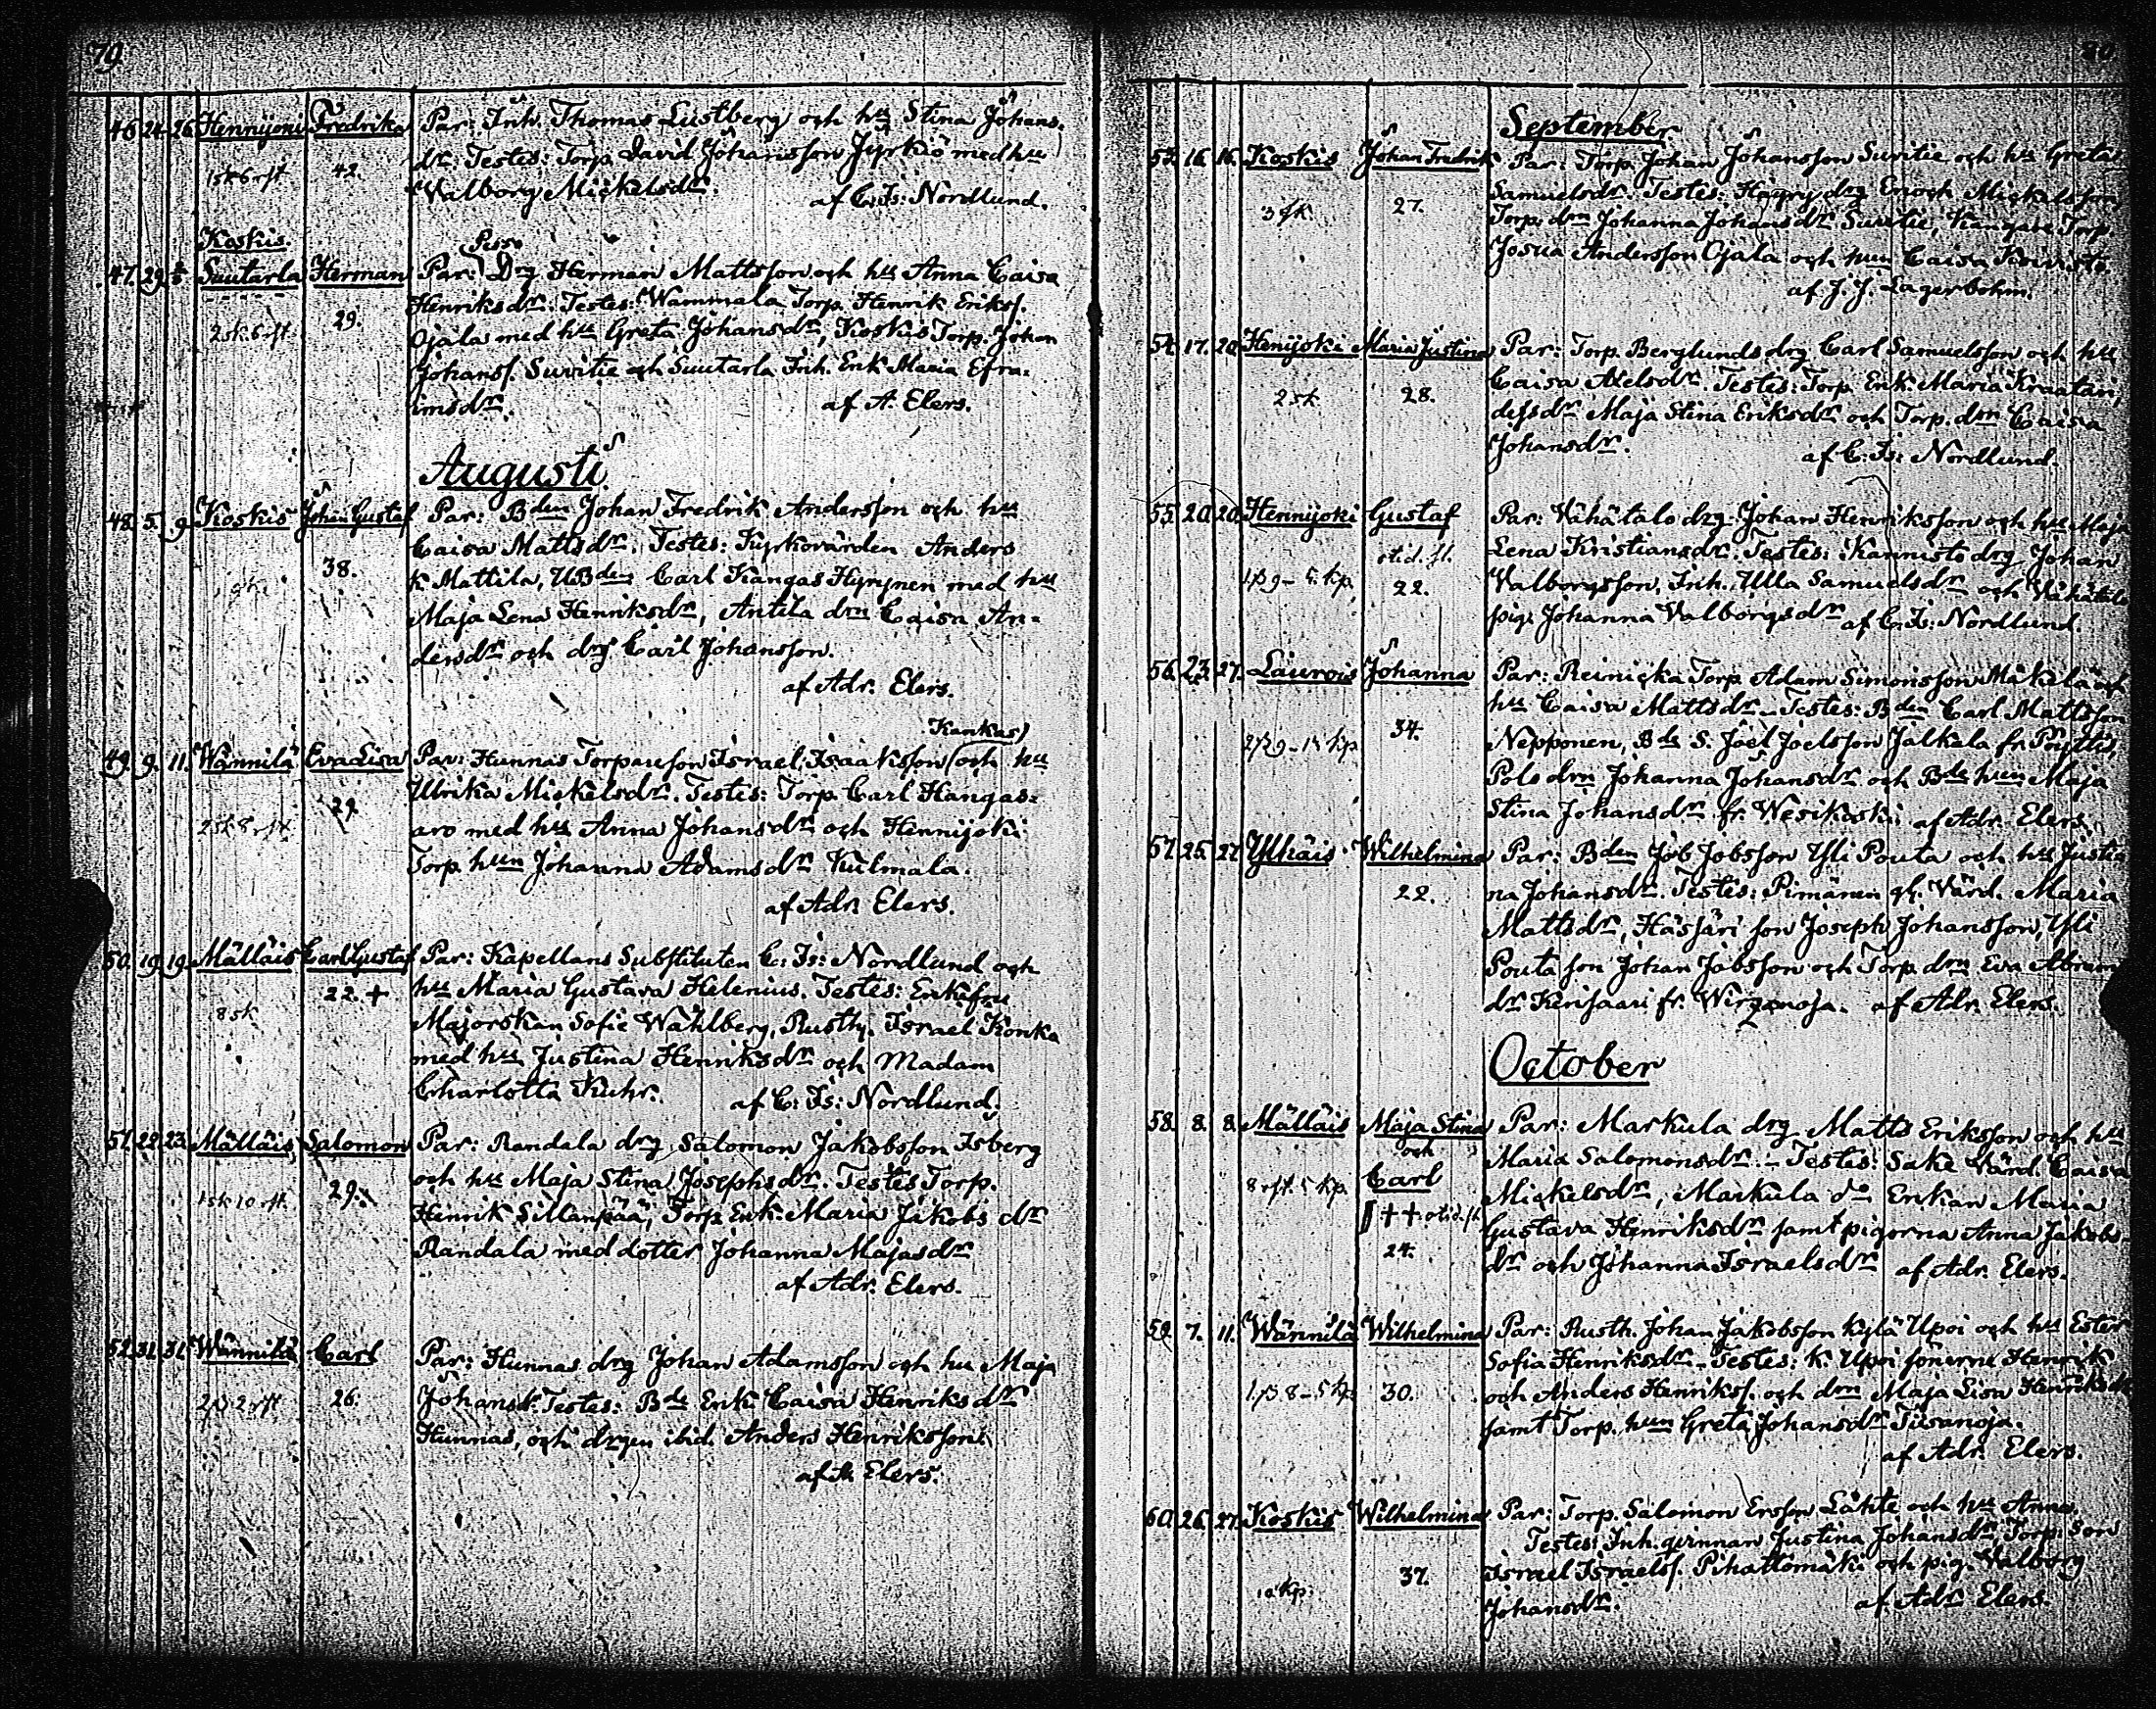 79
46. 24. 26. Hennijoki Fredrika Par: Inh. Thomas Lustberg och hu Stina Johans-
1sk 6 rst. 42. dr. Testes: Torp. David Johansson Jyrkiö med hu
Walborg Mickelsdr.
af C. Fs: Nordlund.
Koskis
47. 29. Suutarla Herman Par: Drg Herman Mattsson och hu Anna Caisa
2sk. 6 rst. 29. Henriksdr. Testes: Wammala Torp. Henrik Erikss.
Ojala med hu Greta Johansdr, Koskis Torp. Johan
Johanss. Suvitie och Suutarla Inh. Enk. Maria Efra-
imsdr. af A. Elers.
Augusti
48. 5. 9. Koskis Johan Gustaf Par: Bden Johan Fredrik Andersson och hu
38. Caisa Mattsdr. Testes: Kyrkovärden Anders
K Mattila, UBden Carl Kangas Hyrynen med hu
Maja Lena Henriksdr, Antila drn Caisa An-
dersdr och drg Carl Johansson.
af Adr. Elers.
Kankas)
49. 9. 11. Wännilä Eva Lisa Par: Hunnas Torpareson Israel Isaaksson (och hu
2sk 8 rst. 29. Ulrika Mickelsdr. Testes: Torp. Carl Hangas-
aro med hu Anna Johansdr och Hennijoki
Torp. hun Johanna Adamsdr Kulmala.
af Adr. Elers.
50. 19. 19. Mälläis Carl Gustaf Par: Kapellans Substituten C: Fs: Nordlund och
8 sk 22. + hu Maria Gustava Helenius. Testes: Enkefru
Majorskan Sofie Wahlberg, Rusth. Israel Konka
med hu Justina Henriksdr och Madam
Charlotta Kuhr. af C: Fs: Nordlund.
51. 22. 23. Mälläis Salomon Par: Randala drg Salomon Jakobsson Isberg
1sk 10 rst. 29. och hu Maja Stina Josephsdr. Testes Torp.
Henrik Sillanpää, Torp. Enk. Maria Jakobs dr
Randala med dotter Johanna Majasdr
af Adr. Elers.
52. 31. 31. Wännilä Carl Par: Hunnas drg Johan Adamsson och hu Maja
26. Johansdr. Testes: Bds Enk. Caisa Henriksdr
Hunnas, och drgen ibid. Anders Henriksson.
af A. Elers.
80
September
53. 16. 16. Koskis Johan Fredrik Par: Torp. Johan Johansson Suvitie och hu Greta
27. Samuelsdr. Testes: drg Enoch Mickelsson
Torp. drn Johanna Johansdr Suvitie, Torp.
Josua Andersson Ojala och hun Caisa
af J. J. Lagerbohm.
54. 17. 20. Henijoki Maria Justina Par: Torp. Berglunds drg Carl Samuelsson och hu
2 sk. 28. Caisa Axelsdr. Testes: Torp. Enk. Maria Kraatari,
dess dr Maja Stina Eriksdr och Torp. drn Caisa
Johansdr. af C. Fs: Nordlund.
55. 20. 20. Hennijoki Gustaf Par: Vähätalo drg. Johan Henriksson och hu Maja
22. Lena Kristiansdr. Testes: Kannisto drg Johan
Valborgsson, Inh. Ulla Samuelsdr och Vähätalo
pig. Johanna Valborgsdr af C. Fs: Nordlund.
56. 23. 27. Laurois Johanna Par: Reinicka Torp. Adam Simonsson Mäkelä och
34. hu Caisa Mattsdr. Testes: Bden Carl Mattsson
Nepponen, Bds S. Joel Joelsson Jalkala fr. Pöyttis,
Polo drn Johanna Johansdr och Bds hun Maja
Stina Johansdr fr. Wesikoski. af Adr. Elers.
57. 25. 27. Ylhäis Wilhelmina Par: Bden Job Jobsson Yli Pouta och hu Justi-
22. na Johansdr. Testes: Pimänen gl. Värd. Maria
Mattsdr, son Joseph Johansson, Yli
Pouta son Johan Jobsson och Torp. drn Eva Abram
dr Kirisaari fr. Wirzanoja. af Adr. Elers.
October
58. 8. 8. Mälläis Maja Stina Par: Markula drg Matts Eriksson och hu
och Maria Salomonsdr. Testes: Sake Värd. Caisa
Carl Mickelsdr, Markula do Enkan Maria
++ Gustava Henriksdr samt pigorna Anna Jakobs-
24. dr och Johanna Israelsdr af Adr. Elers.
59. 7. 11. Wännilä Wilhelmina Par: Rusth. Johan Jakobsson Kylä Upoi och hu Ester
30. Sofia Henriksdr. Testes: K. Upoi sönerne Henrik
och Anders Henrikss. och drn Maja Lisa Henriksdr
samt Torp. hun Greta Johansdr Tiisanoja.
af Adr. Elers.
60. 26. 27. Koskis Wilhelmina Par: Torp. Salomon Ersson Lähte och hu Anna
Testes: Inh. qvinnan Justina Johansdr, Torp. Son
37. Israel Israelss. Pihattomäki och pig. Valborg
Johansdr. af Adr. Elers.